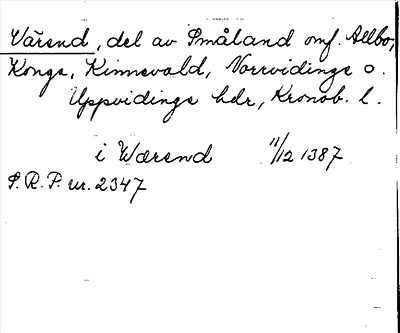 Värend, del av Småland omf. Allbo,
Konga, Kinnevald, Norrvidinge o.
Uppvidinge hdr, Kronob. l.
i Wærend 11/12 1387
S.R.P. nr. 2347